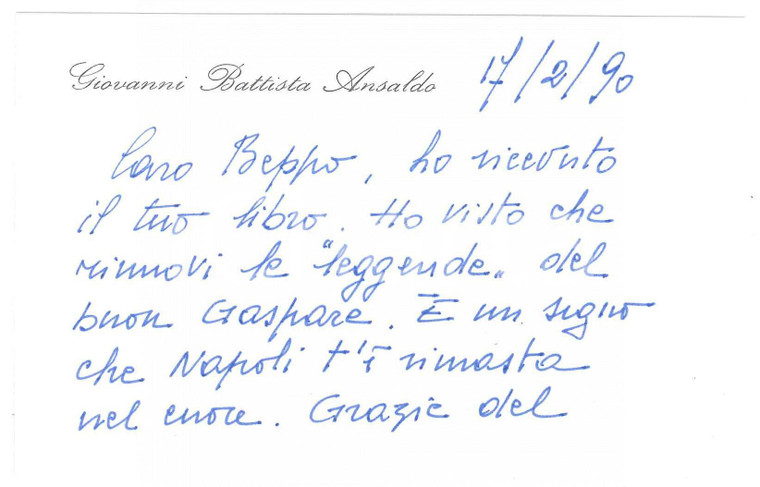 Giovanni Battista Ansaldo 17/2/90
Caro Beppo, ho ricevuto
il tuo libro. Ho visto che
rinnovi le "leggende" del
buon Gaspare. È un segno
che Napoli t'è rimasta
nel cuore. Grazie del